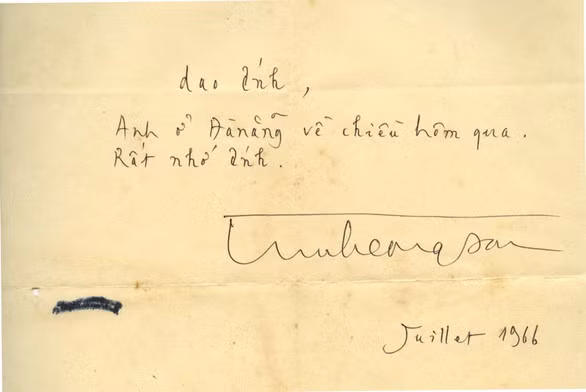 dao ánh ,
Anh ở Đànẵng về chiều hôm qua .
Rất nhớ ánh .
trinhcongson
Juillet 1966